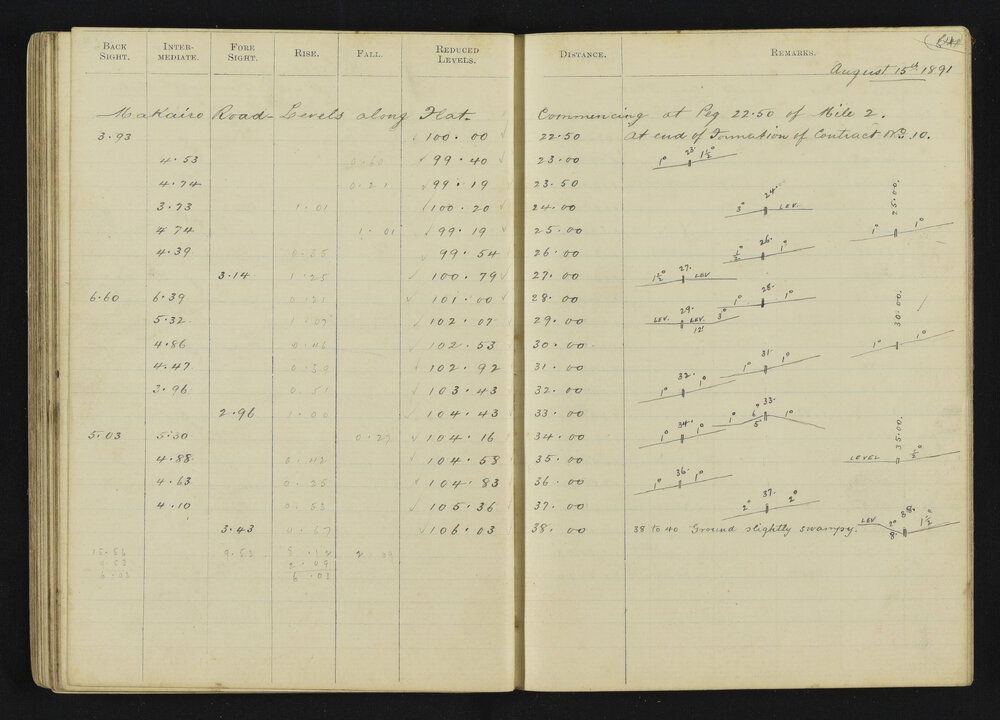 BACK SIGHT. INTER-MEDIATE. FORE SIGHT. RISE. FALL. REDUCED LEVELS. DISTANCE. REMARKS.
August 15th 1891
Makairo Road - Levels along Flat. Commencing at Peg 22.50 of Mile 2.
3.93 100.00 22.50 at end of Formation of Contract No. 10.
4.53 0.60 99.40 23.00 1° 23. 1½°
4.74 0.21 99.19 23.50
3.73 1.01 100.20 24.00 3° 24. LEV.
4.74 1.01 99.19 25.00 1° 25.00. 1°
4.39 0.35 99.54 26.00 ½° 26. 1°
3.14 1.25 100.79 27.00 1½° 27. LEV
6.60 6.39 0.21 101.00 28.00 1° 28. 1°
5.32 1.07 102.07 29.00 LEV. 29. LEV. 12' 3°
4.86 0.46 102.53 30.00 1° 30.00. 1°
4.47 0.39 102.92 31.00 1° 31. 1°
3.96 0.51 103.43 32.00 1° 32. 1°
2.96 1.00 104.43 33.00 1° 6° 33. 5' 1°
5.03 5.30 0.27 104.16 34.00 1° 34. 1°
4.88 0.42 104.58 35.00 LEVEL 35.00. ½°
4.63 0.25 104.83 36.00 1° 36. 1°
4.10 0.53 105.36 37.00 2° 37. 2°
3.43 0.67 106.03 38.00 38 to 40 Ground slightly swampy. LEV 2° 8' 38. 1½°
15.56 9.53 8.12 2.09
9.53 2.09
6.03 6.03